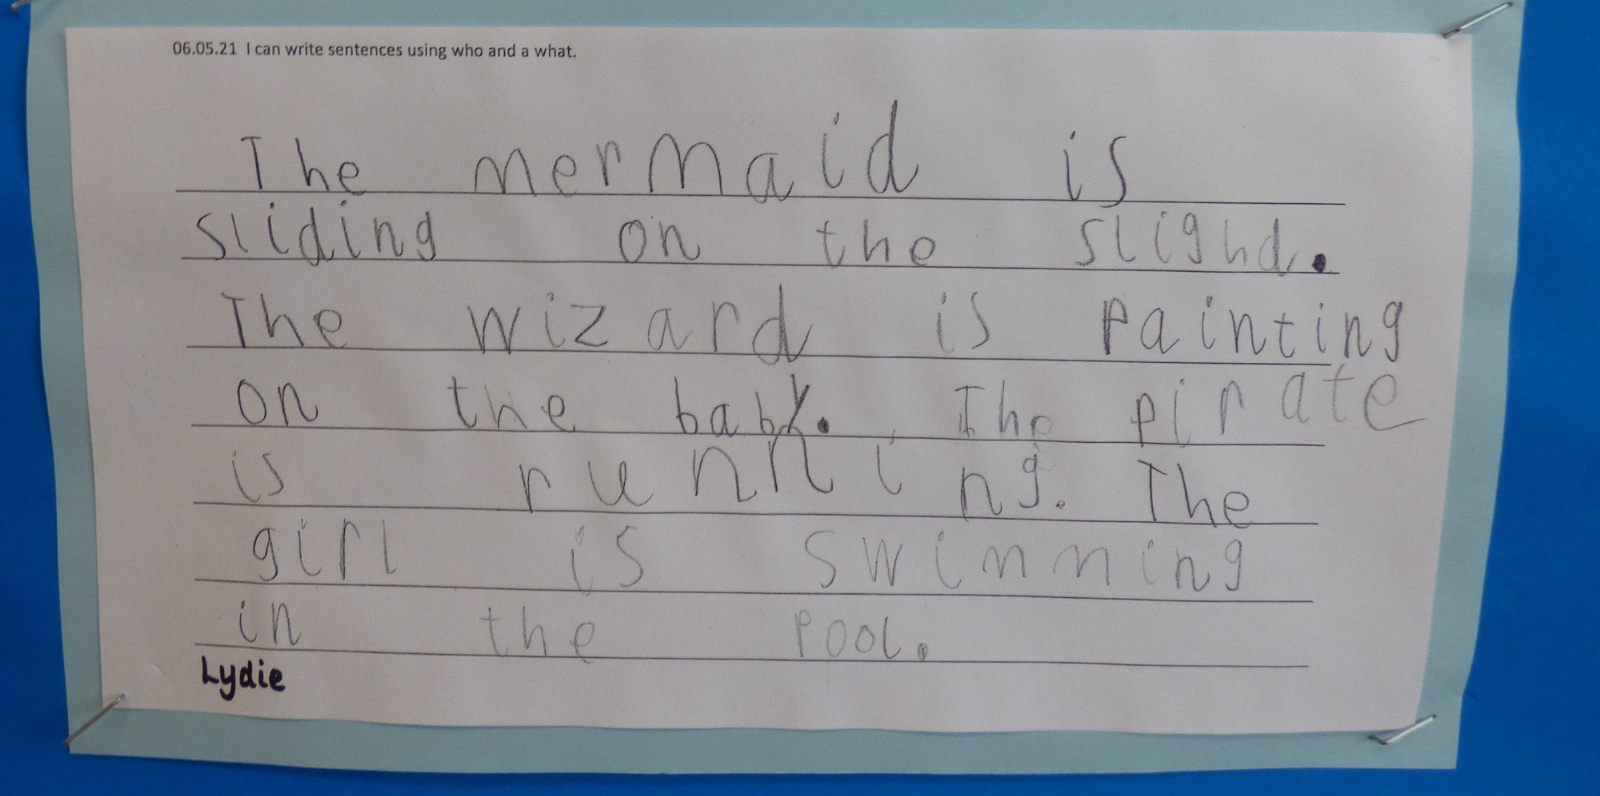 06.05.21 I can write sentences using who and a what.
The mermaid is
sliding on the slighd.
The wizard is painting
on the baby. The pirate
is running. The
girl is swimming
in the pool.
Lydie